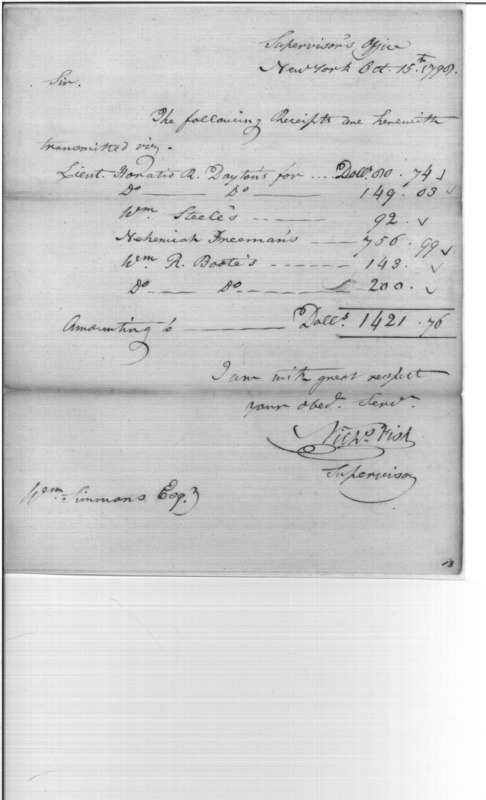 Supervisor's Office
New York Oct. 15th. 1798.
Sir.
The following Receipts are herewith
transmitted viz.
Lieut. Horatio R. Dayton's for ... Dolls. 80. 74
Do —— Do —— 149. 03
Wm. Steele's —— 92.
Nehemiah Freeman's —— 756. 99
Wm. R. Boote's —— 143.
Do —— Do —— 200.
Amounting to —— Dolls. 1421. 76
I am with great respect
your obed. Serv.
Nichs Fish
Supervisor
Wm. Simmons Esqr.
13